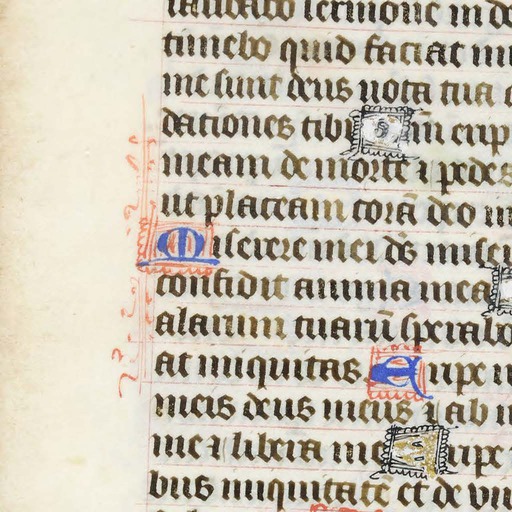 laudabo sermone in d
timebo quid faciat mi
me sunt deus uota tua
dationes tibi Qm̄ erip
meam de morte ⁊ pedes
ut placeam corā deo in
Miserere mei ds̄ miser
confidit anima mea
alarum tuarū sperabo
at iniquitas Eripe
meis deus meus ⁊ ab in
me ⁊ libera me Eripe
bus iniquitatē et de vi